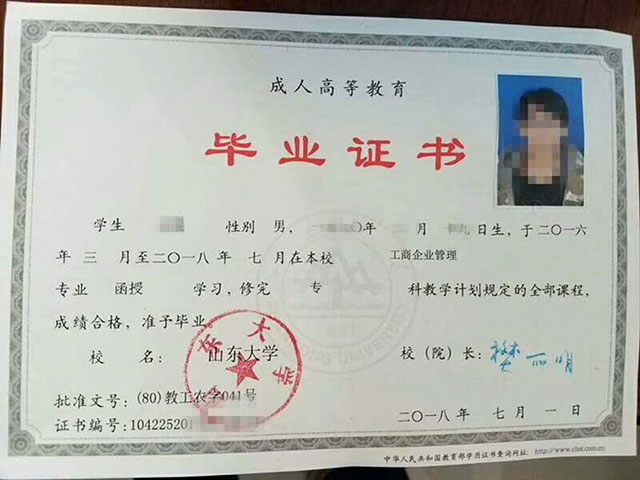 成人高等教育
毕业证书
学生 性别 男， 〇年 月 日生，于二〇一六
年 三 月至二〇一八年 七 月在本校 工商企业管理
专业 函授 学习，修完 专 科教学计划规定的全部课程，
成绩合格，准予毕业。
校 名： 山东大学 校（院）长：樊丽明
山东大学
批准文号：(80)教工农字041号
证书编号：10422520 二〇一八年 七 月 一 日
中华人民共和国教育部学历证书查询网址：http://www.chsi.com.cn